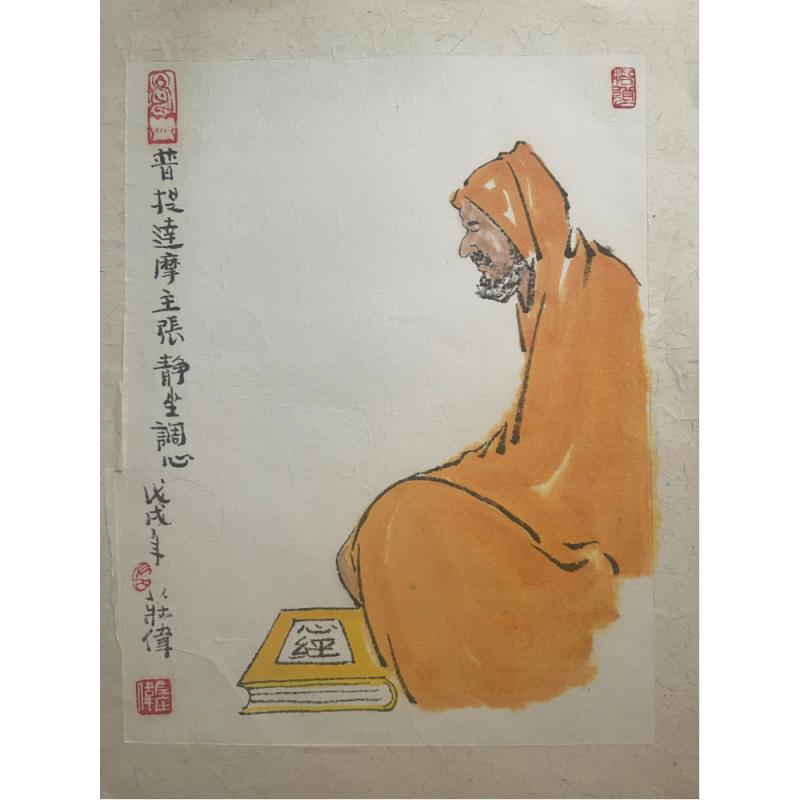 普提達摩主張靜坐調心
戊戌年
莊偉
心經